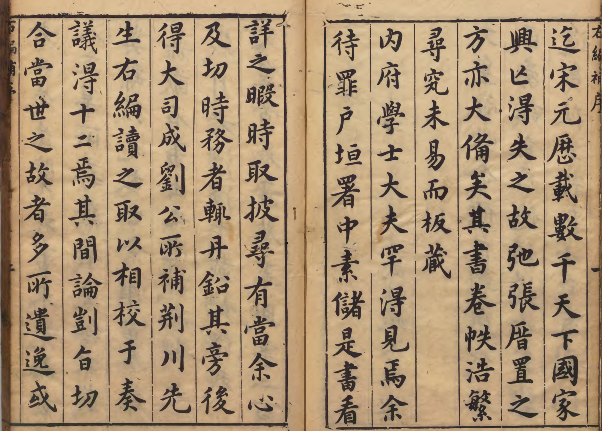 右編補序
迄宋元歷載數千天下國家
興亡得失之故弛張厝置之
方亦大俻矣其書卷帙浩繁
尋究未易而板藏
内府學士大夫罕得見焉余
待罪戶垣署中素儲是書看
詳之暇時取披尋有當余心
及切時務者輙丹鉛其旁後
得大司成劉公所補荆川先
生右編讀之取以相校于奏
議淂十二焉其間論剴旨切
合當世之故者多所遺逸或
右編補序